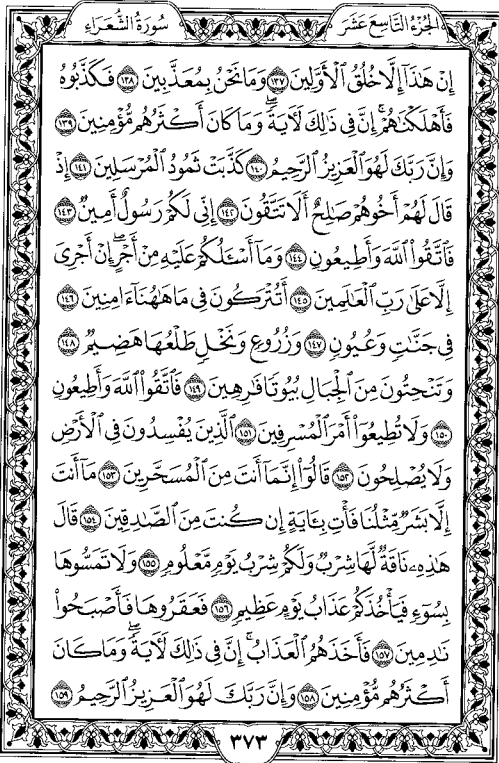 سُورَةُ الشُّعَرَاءِ
الجُزْءُ التَّاسِعَ عَشَرَ
إِنْ هَٰذَآ إِلَّا خُلُقُ ٱلْأَوَّلِينَ ١٣٧ وَمَا نَحْنُ بِمُعَذَّبِينَ ١٣٨ فَكَذَّبُوهُ
فَأَهْلَكْنَٰهُمْ ۚ إِنَّ فِى ذَٰلِكَ لَءَايَةً ۖ وَمَا كَانَ أَكْثَرُهُم مُّؤْمِنِينَ ١٣٩
وَإِنَّ رَبَّكَ لَهُوَ ٱلْعَزِيزُ ٱلرَّحِيمُ ١٤٠ كَذَّبَتْ ثَمُودُ ٱلْمُرْسَلِينَ ١٤١ إِذْ
قَالَ لَهُمْ أَخُوهُمْ صَٰلِحٌ أَلَا تَتَّقُونَ ١٤٢ إِنِّى لَكُمْ رَسُولٌ أَمِينٌ ١٤٣
فَٱتَّقُوا۟ ٱللَّهَ وَأَطِيعُونِ ١٤٤ وَمَآ أَسْـَٔلُكُمْ عَلَيْهِ مِنْ أَجْرٍ ۖ إِنْ أَجْرِىَ
إِلَّا عَلَىٰ رَبِّ ٱلْعَٰلَمِينَ ١٤٥ أَتُتْرَكُونَ فِى مَا هَٰهُنَآ ءَامِنِينَ ١٤٦
فِى جَنَّٰتٍ وَعُيُونٍ ١٤٧ وَزُرُوعٍ وَنَخْلٍ طَلْعُهَا هَضِيمٌ ١٤٨
وَتَنْحِتُونَ مِنَ ٱلْجِبَالِ بُيُوتًا فَٰرِهِينَ ١٤٩ فَٱتَّقُوا۟ ٱللَّهَ وَأَطِيعُونِ
١٥٠ وَلَا تُطِيعُوٓا۟ أَمْرَ ٱلْمُسْرِفِينَ ١٥١ ٱلَّذِينَ يُفْسِدُونَ فِى ٱلْأَرْضِ
وَلَا يُصْلِحُونَ ١٥٢ قَالُوٓا۟ إِنَّمَآ أَنتَ مِنَ ٱلْمُسَحَّرِينَ ١٥٣ مَآ أَنتَ
إِلَّا بَشَرٌ مِّثْلُنَا فَأْتِ بِـَٔايَةٍ إِن كُنتَ مِنَ ٱلصَّٰدِقِينَ ١٥٤ قَالَ
هَٰذِهِۦ نَاقَةٌ لَّهَا شِرْبٌ وَلَكُمْ شِرْبُ يَوْمٍ مَّعْلُومٍ ١٥٥ وَلَا تَمَسُّوهَا
بِسُوٓءٍ فَيَأْخُذَكُمْ عَذَابُ يَوْمٍ عَظِيمٍ ١٥٦ فَعَقَرُوهَا فَأَصْبَحُوا۟
نَٰدِمِينَ ١٥٧ فَأَخَذَهُمُ ٱلْعَذَابُ ۗ إِنَّ فِى ذَٰلِكَ لَءَايَةً ۖ وَمَا كَانَ
أَكْثَرُهُم مُّؤْمِنِينَ ١٥٨ وَإِنَّ رَبَّكَ لَهُوَ ٱلْعَزِيزُ ٱلرَّحِيمُ ١٥٩
٣٧٣